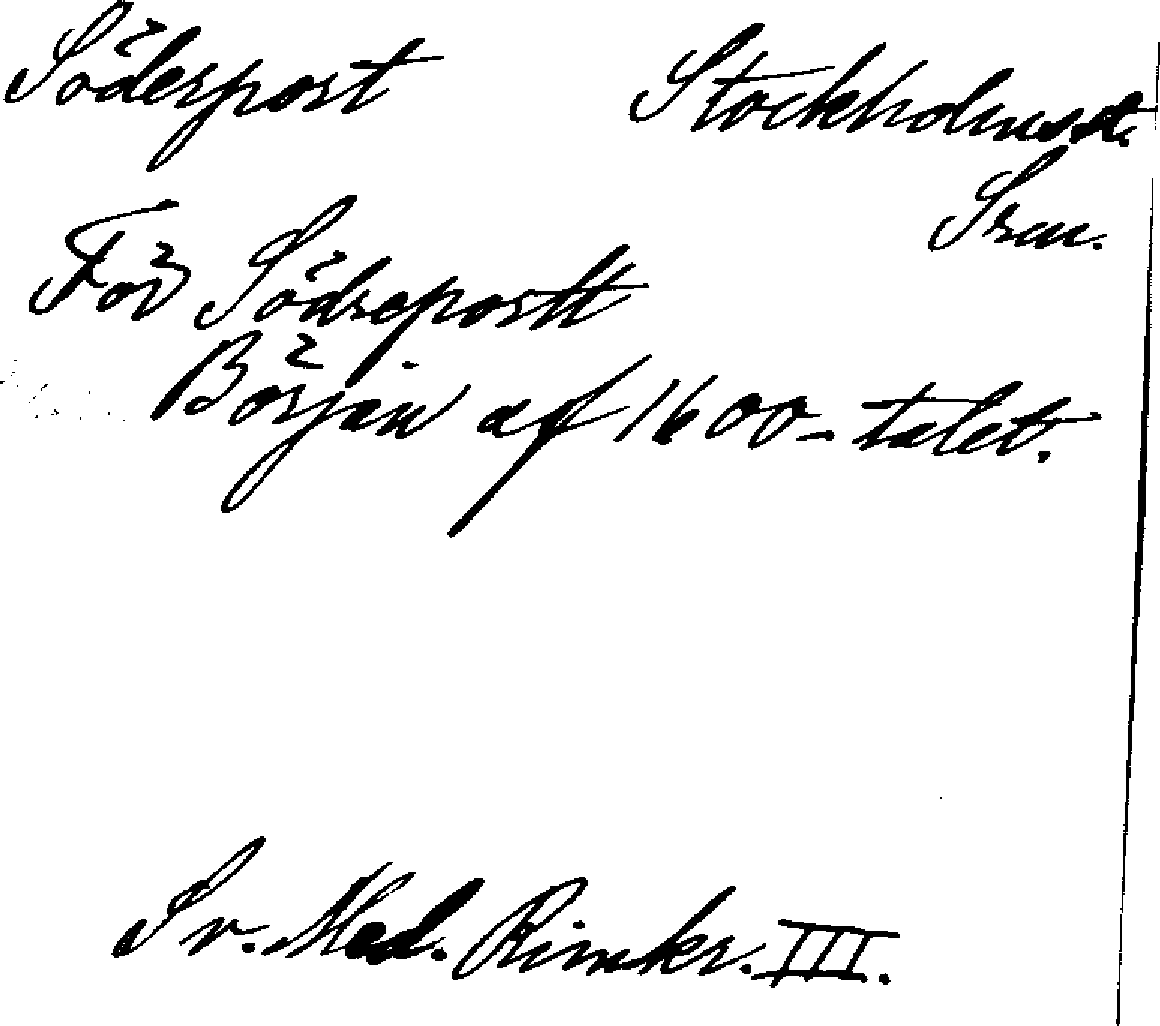 Söderport Stockholms st.
Srm.
För Södreportt
Början af 1600-talet.
Sv. Med. Rimkr. III.